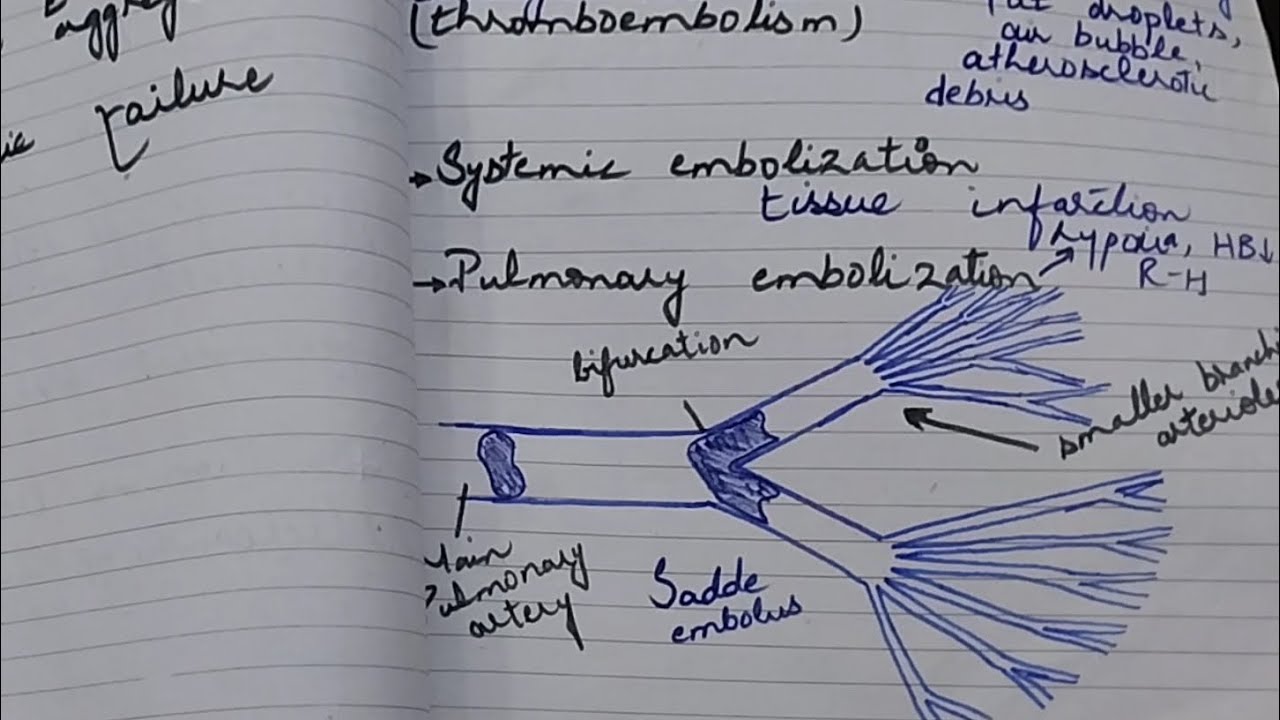 failure
(thromboembolism)
droplets,
air bubble,
atherosclerotic
debris
→Systemic embolization
tissue infarction
→Pulmonary embolization
hypoxia, HB↓
R-H
bifurcation
smaller
Pulmonary
artery
Sadde
embolus